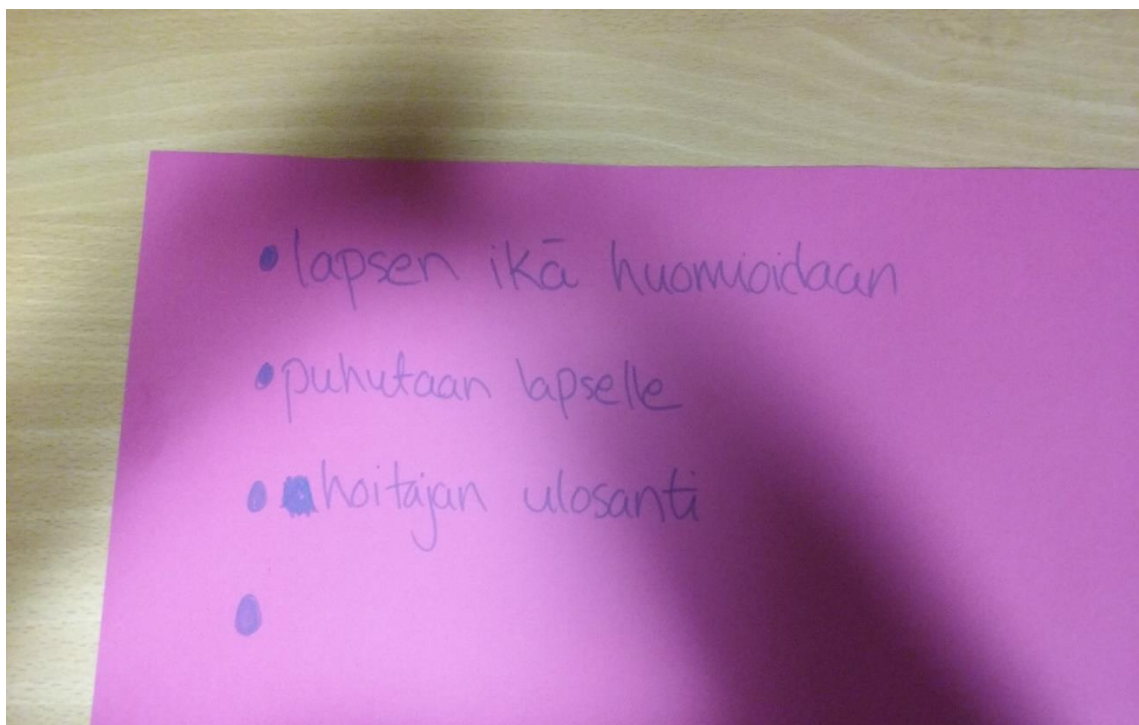 • lapsen ikä huomioidaan
• puhutaan lapselle
• hoitajan ulosanti
•